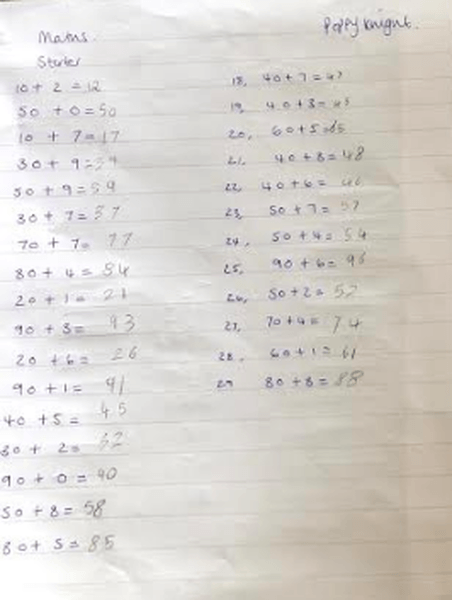 Maths.
Poppy Knight.
Starter
10 + 2 = 12
50 + 0 = 50
10 + 7 = 17
30 + 9 = 39
50 + 9 = 59
30 + 7 = 37
70 + 7 = 77
80 + 4 = 84
20 + 1 = 21
90 + 3 = 93
20 + 6 = 26
90 + 1 = 91
40 + 5 = 45
30 + 2 = 32
90 + 0 = 90
50 + 8 = 58
80 + 5 = 85
18, 40 + 7 = 47
19, 40 + 3 = 43
20, 60 + 5 = 65
21, 40 + 8 = 48
22, 40 + 6 = 46
23, 50 + 7 = 57
24, 50 + 4 = 54
25, 90 + 6 = 96
26, 50 + 2 = 52
27, 70 + 4 = 74
28. 60 + 1 = 61
29 80 + 8 = 88